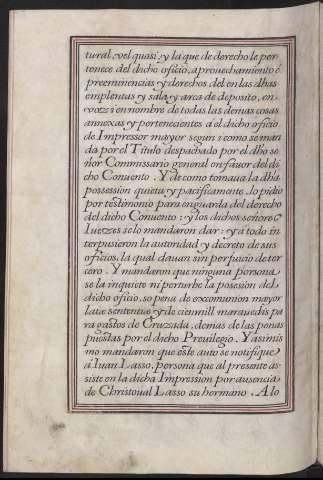 tural, vel quasi: y la que de derecho le per
tenece del dicho oficio, aprouechamientos
preeminencias y derechos del en las dhas
emplentas y sala, y arca de deposito, en
rocezi en nombre de todas las demas cosas
annexas y pertenecientes á el dicho oficio
de Impressor mayor segun i como se man
da por el Titulo despachado por el dho se
ñor Commissario general en fauor del di
cho Conuento. Y de como tomaua la dhá
possession quieta y pacificamente lo pidio
por testimonio para en guarda del derecho
del dicho Conuento: y los dichos señores
Iuezes se lo mandaron dar: y á todo in
terpusieron la autoridad y decreto de sus
oficios, la qual dauan sin perjuicio de ter
cero. Y mandaron que ninguna persona
se la inquiete ni perturbe la posesion del
dicho oficio, so pena de excomunion mayor
latæ sententiæ y de cien mill marauedis pa
ra gastos de Cruzada, demas de las penas
puestas por el dicho Preuilegio. Y asimis
mo mandaron que este auto se notifique
á Iuan Lasso, persona que al presente as
siste en la dicha Impression por ausencia
de Christoual Lasso su hermano. A lo